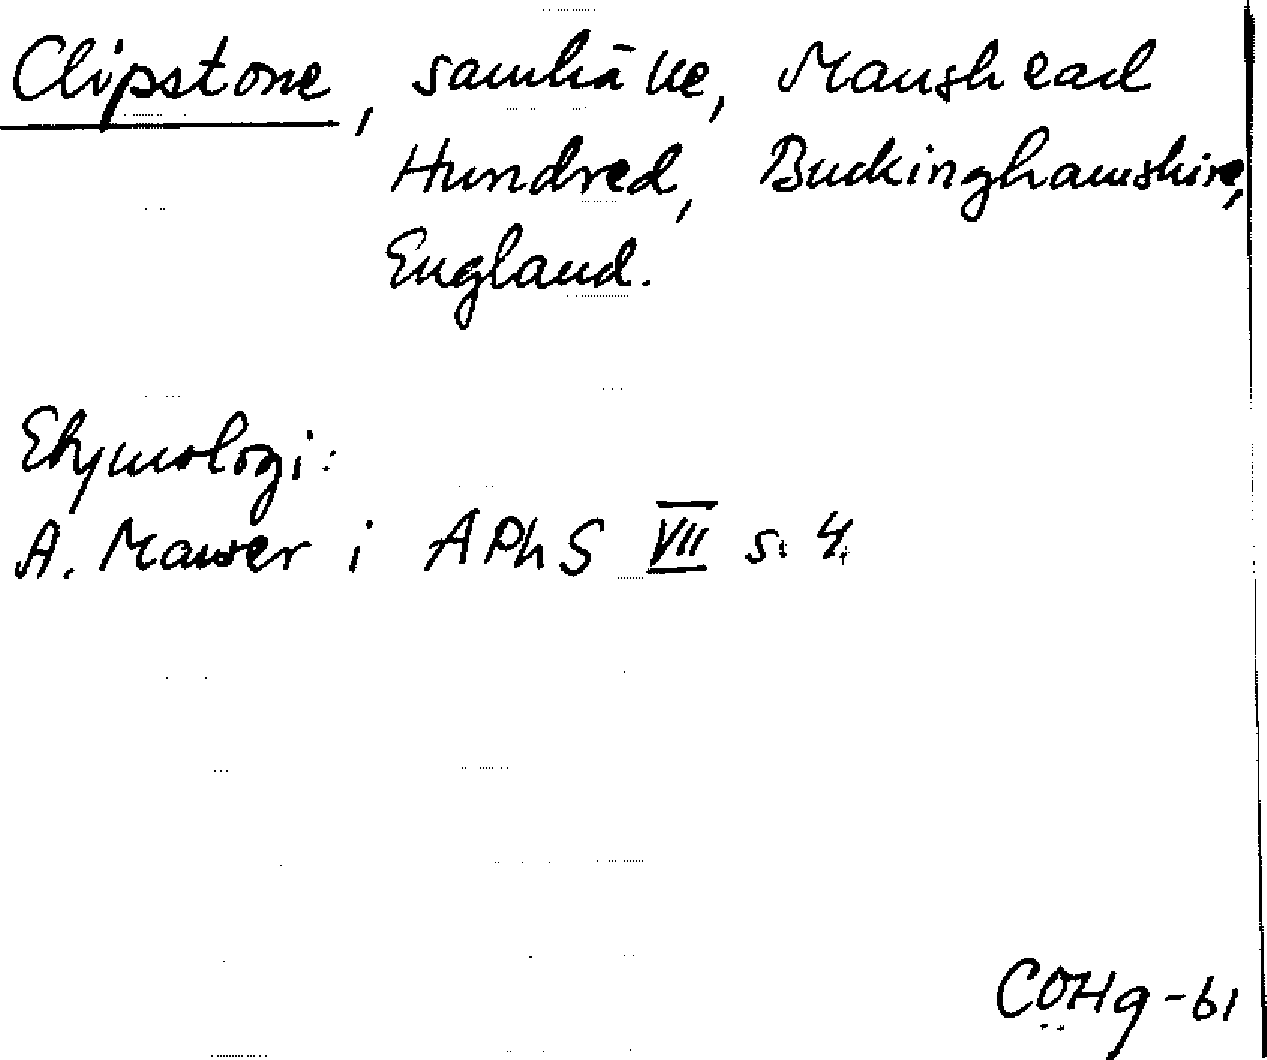 Clipstone, samhälle, Manshead
Hundred, Buckinghamshire,
England.
Etymologi:
A. Mawer i APhS VII s. 4.
COHg-61